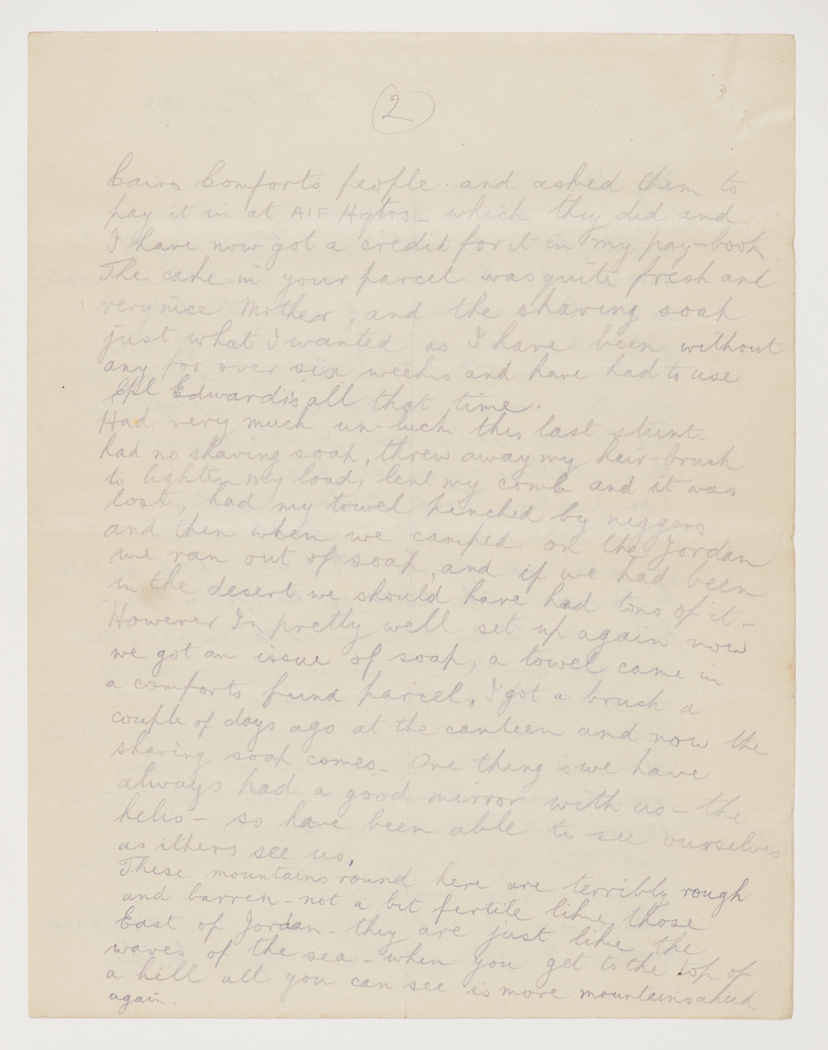 2
Cairo Comforts people and asked them to
pay it in at AIF Hqtrs - which they did and
I have now got a credit for it in my pay-book
The cake in your parcel was quite fresh and
very nice Mother, and the shaving soap
just what I wanted as I have been without
any for over six weeks and have had to use
Cpl Edwards's all that time.
Had very much un-luck this last stunt.
had no shaving soap, threw away my hair-brush
to lighten my load, lent my comb and it was
lost, had my towel pinched by niggers
and then when we camped on the Jordan
we ran out of soap, and if we had been
in the desert we should have had tons of it -
However I'm pretty well set up again now
we got an issue of soap, a towel came in
a comforts fund parcel, I got a brush a
couple of days ago at the canteen and now the
shaving soap comes - One thing is we have
always had a good mirror with us - the
helio - so have been able to see ourselves
as ithers see us,
These mountains round here are terribly rough
and barren - not a bit fertile like those
East of Jordan - they are just like the
waves of the sea - when you get to the top of
a hill all you can see is more mountains ahead
again.